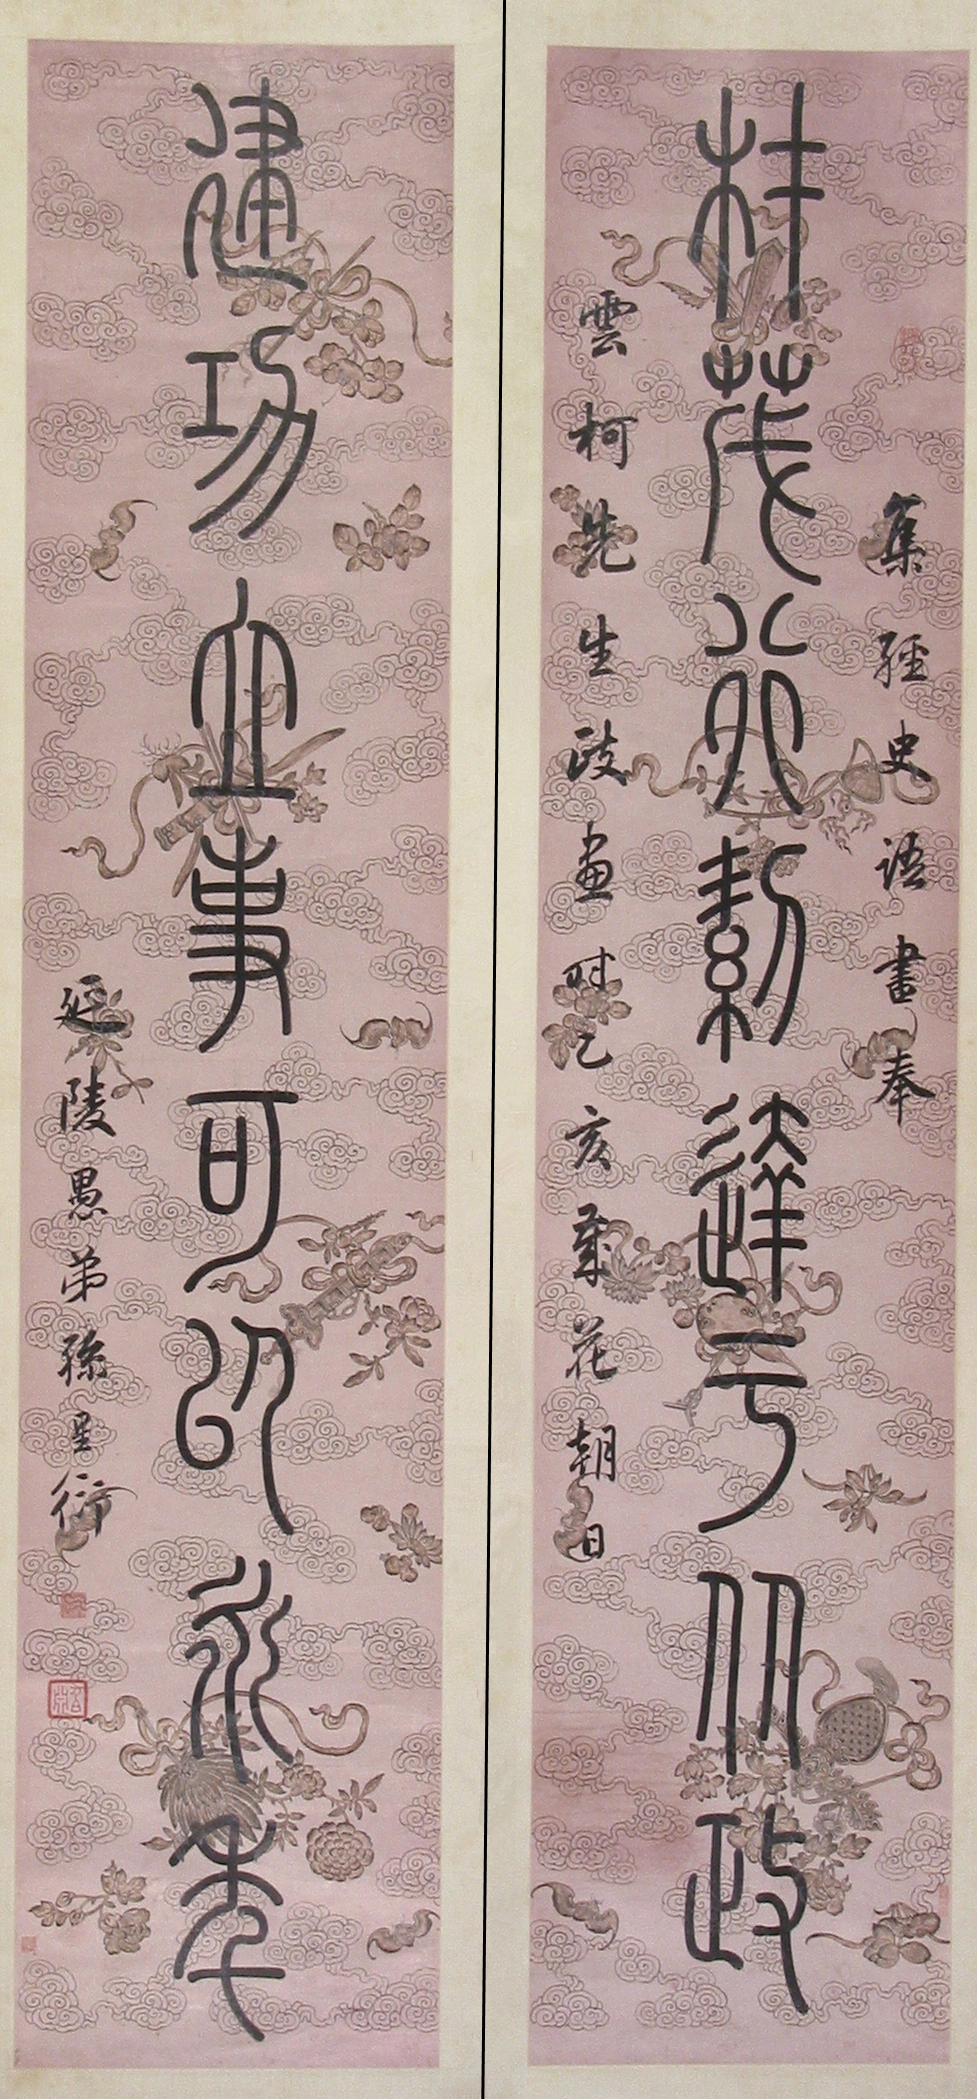 集經史語書奉
材茂行絜達于从政
雲柯先生政畫時乙亥歲花朝日
建功立事可以永年
延陵愚弟孫星衍